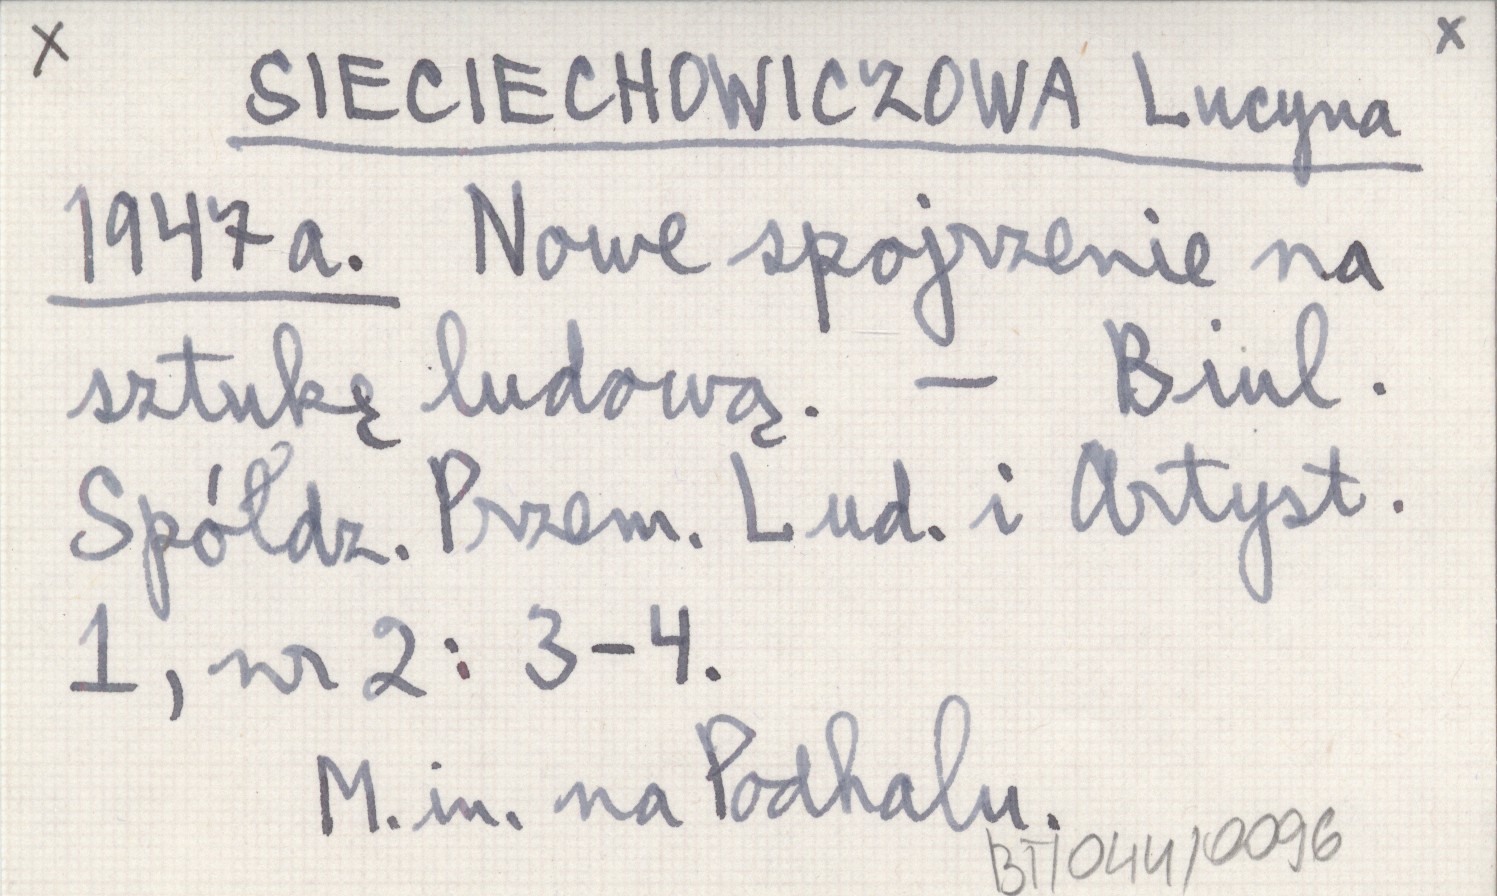 x x
SIECIECHOWICZOWA Lucyna
1947a. Nowe spojrzenie na
sztukę ludową. — Biul.
Spółdz. Przem. Lud. i Artyst.
1, nr 2: 3-4.
M. in. na Podhalu.
BT/044/0096